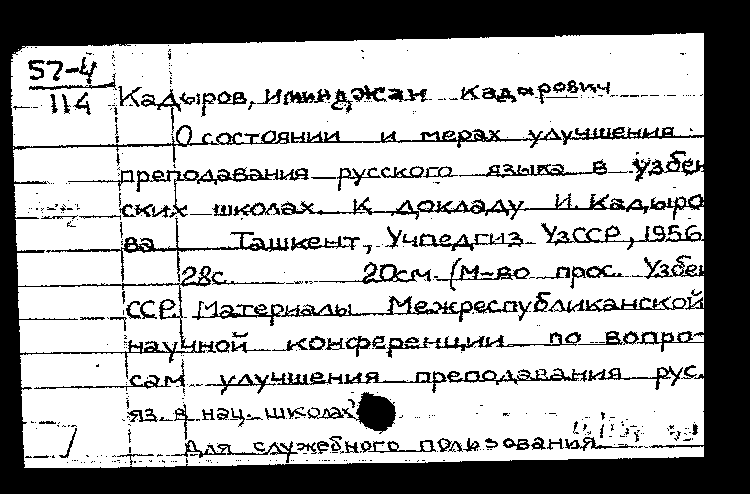 57-4
114
Кадыров, Иминджан Кадырович
О состоянии и мерах улучшения
преподавания русского языка в узбек
ских школах. К докладу И. Кадыро
ва Ташкент, Учпедгиз УзССР, 1956
28с. 20см. (М-во прос. Узбек
ССР. Материалы Межреспубликанской
научной конференции по вопро-
сам улучшения преподавания рус.
яз. в нац. школах)
Для служебного пользования